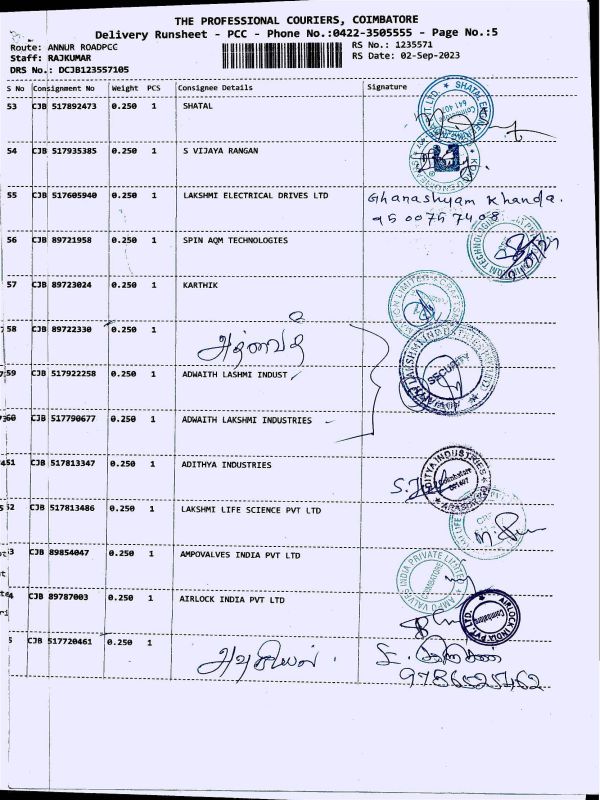 THE PROFESSIONAL COURIERS, COIMBATORE
Delivery Runsheet - PCC - Phone No.:0422-3505555 - Page No.:5
Route: ANNUR ROADPCC
RS No.: 1235571
Staff: RAJKUMAR
RS Date: 02-Sep-2023
DRS No.: DCJB123557105
S No Consignment No Weight PCS Consignee Details Signature
53 CJB 517892473 0.250 1 SHATAL
54 CJB 517935385 0.250 1 S VIJAYA RANGAN
55 CJB 517605940 0.250 1 LAKSHMI ELECTRICAL DRIVES LTD Ghanashyam Khanda.
9500757408
56 CJB 89721958 0.250 1 SPIN AQM TECHNOLOGIES
57 CJB 89723024 0.250 1 KARTHIK
58 CJB 89722330 0.250 1
59 CJB 517922258 0.250 1 ADWAITH LASHMI INDUST
SECURITY
60 CJB 517790677 0.250 1 ADWAITH LAKSHMI INDUSTRIES
CJB 517813347 0.250 1 ADITHYA INDUSTRIES
CJB 517813486 0.250 1 LAKSHMI LIFE SCIENCE PVT LTD
CJB 89854047 0.250 1 AMPOVALVES INDIA PVT LTD
AMPO VALVES INDIA PRIVATE LIMITED
COIMBATORE
CJB 89787003 0.250 1 AIRLOCK INDIA PVT LTD
AIRLOCK INDIA PVT. LTD.
Coimbatore
CJB 517720461 0.250 1
9786525462